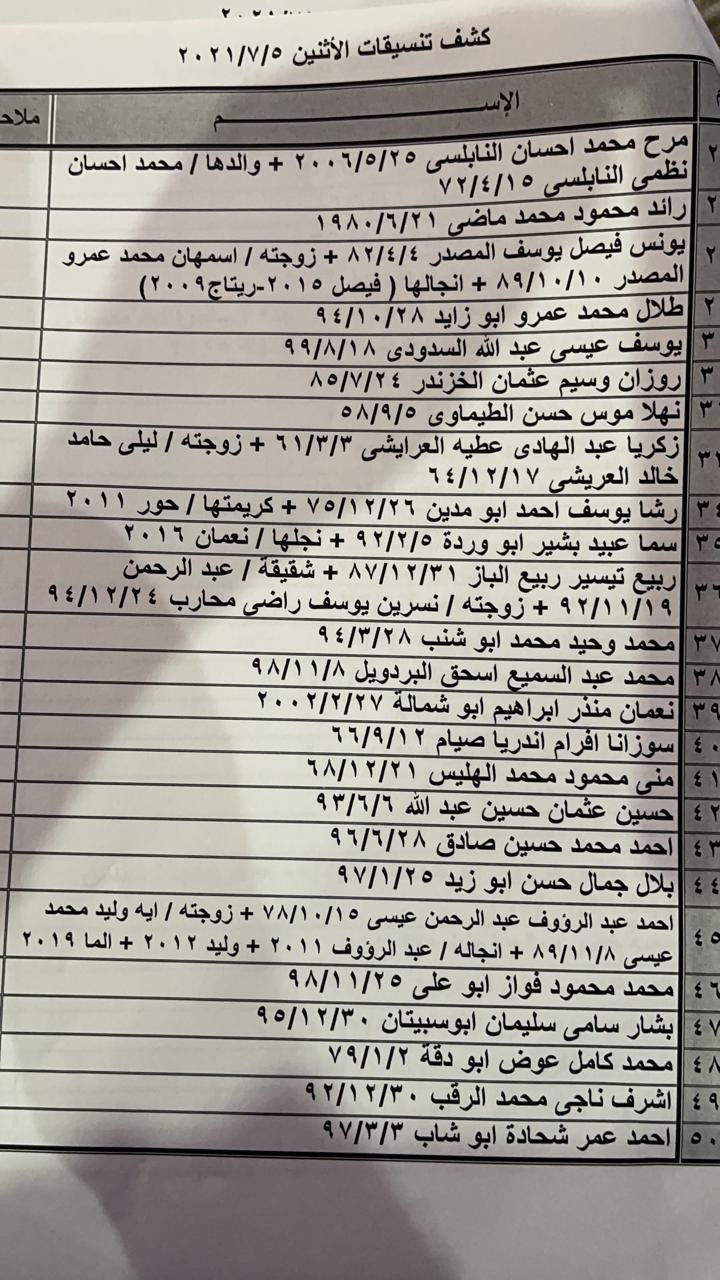 كشف تنسيقات الأثنين ٢٠٢١/٧/٥
الإســـــــم
ملاح
مرح محمد احسان النابلسى ٢٠٠٦/٥/٢٥ + والدها / محمد احسان
نظمى النابلسى ٧٢/٤/١٥
رائد محمود محمد ماضى ١٩٨٠/٦/٢١
يونس فيصل يوسف المصدر ٨٢/٤/٤ + زوجته / اسمهان محمد عمرو
المصدر ٨٩/١٠/١٠ + انجالها ( فيصل ٢٠١٥-ريتاج٢٠٠٩)
طلال محمد عمرو ابو زايد ٩٤/١٠/٢٨
يوسف عيسى عبد الله السدودى ٩٩/٨/١٨
روزان وسيم عثمان الخزندر ٨٥/٧/٢٤
نهلا موس حسن الطيماوى ٥٨/٩/٥
زكريا عبد الهادى عطيه العرايشى ٦١/٣/٣ + زوجته / ليلى حامد
خالد العريشى ٦٤/١٢/١٧
٣٤ رشا يوسف احمد ابو مدين ٧٥/١٢/٢٦ + كريمتها / حور ٢٠١١
٣٥ سما عبيد بشير ابو وردة ٩٢/٢/٥ + نجلها / نعمان ٢٠١٦
٣٦ ربيع تيسير ربيع الباز ٨٧/١٢/٣١ + شقيقة / عبد الرحمن
٩٢/١١/١٩ + زوجته / نسرين يوسف راضى محارب ٩٤/١٢/٢٤
٣٧ محمد وحيد محمد ابو شنب ٩٤/٣/٢٨
٣٨ محمد عبد السميع اسحق البردويل ٩٨/١١/٨
٣٩ نعمان منذر ابراهيم ابو شمالة ٢٠٠٢/٢/٢٧
٤٠ سوزانا افرام اندريا صيام ٦٦/٩/١٢
٤١ منى محمود محمد الهليس ٦٨/١٢/٢١
٤٢ حسين عثمان حسين عبد الله ٩٣/٦/٦
٤٣ احمد محمد حسين صادق ٩٦/٦/٢٨
٤٤ بلال جمال حسن ابو زيد ٩٧/١/٢٥
٤٥ احمد عبد الرؤوف عبد الرحمن عيسى ٧٨/١٠/١٥ + زوجته / ايه وليد محمد
عيسى ٨٩/١١/٨ + انجاله / عبد الرؤوف ٢٠١١ + وليد ٢٠١٢ + الما ٢٠١٩
٤٦ محمد محمود فواز ابو على ٩٨/١١/٢٥
٤٧ بشار سامى سليمان ابوسبيتان ٩٥/١٢/٣٠
٤٨ محمد كامل عوض ابو دقة ٧٩/١/٢
٤٩ اشرف ناجى محمد الرقب ٩٢/١٢/٣٠
٥٠ احمد عمر شحادة ابو شاب ٩٧/٣/٣